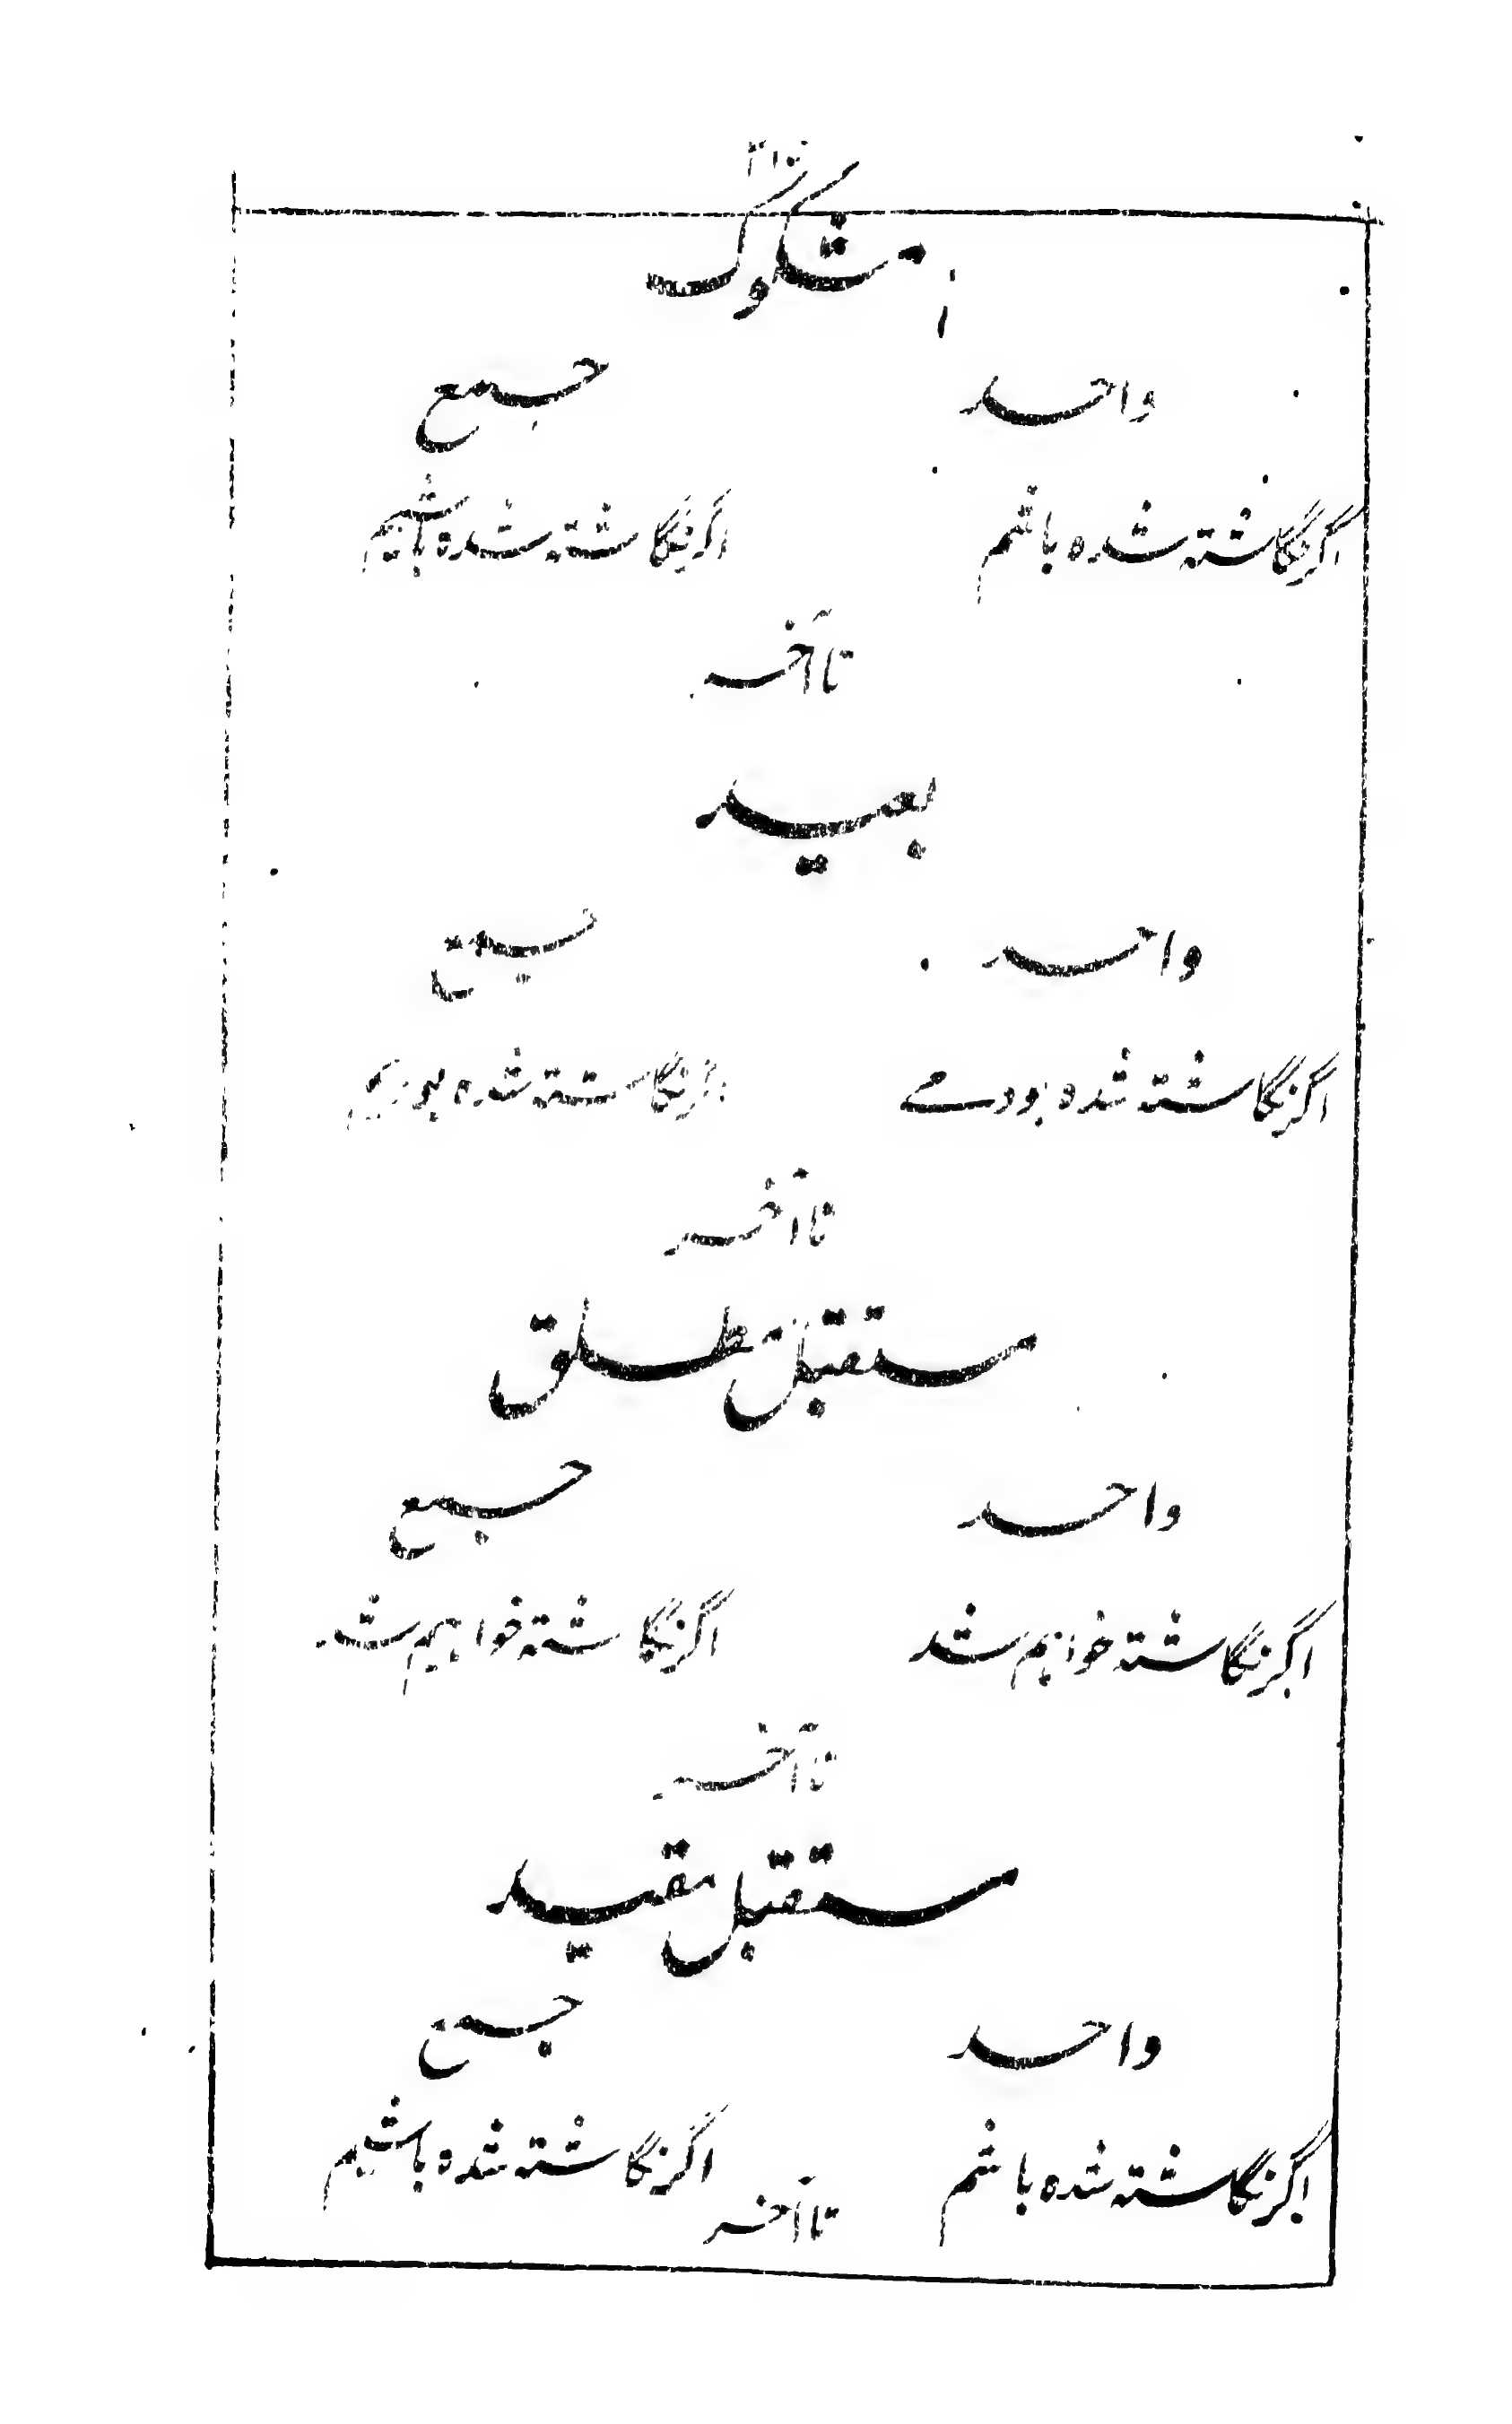 مشکوک
واحد جمع
اگر نگاشته شده باشم اگر نگاشته شده باشیم
تا آخر
بعید
واحد جمع
اگر نگاشته شده بودمے اگر نگاشته شده بودیم
تا آخر
مستقبل مطلق
واحد جمع
اگر نگاشته خواهم شد اگر نگاشته خواهیم شد
تا آخر
مستقبل مقید
واحد جمع
اگر نگاشته شده باشم اگر نگاشته شده باشیم
تا آخر